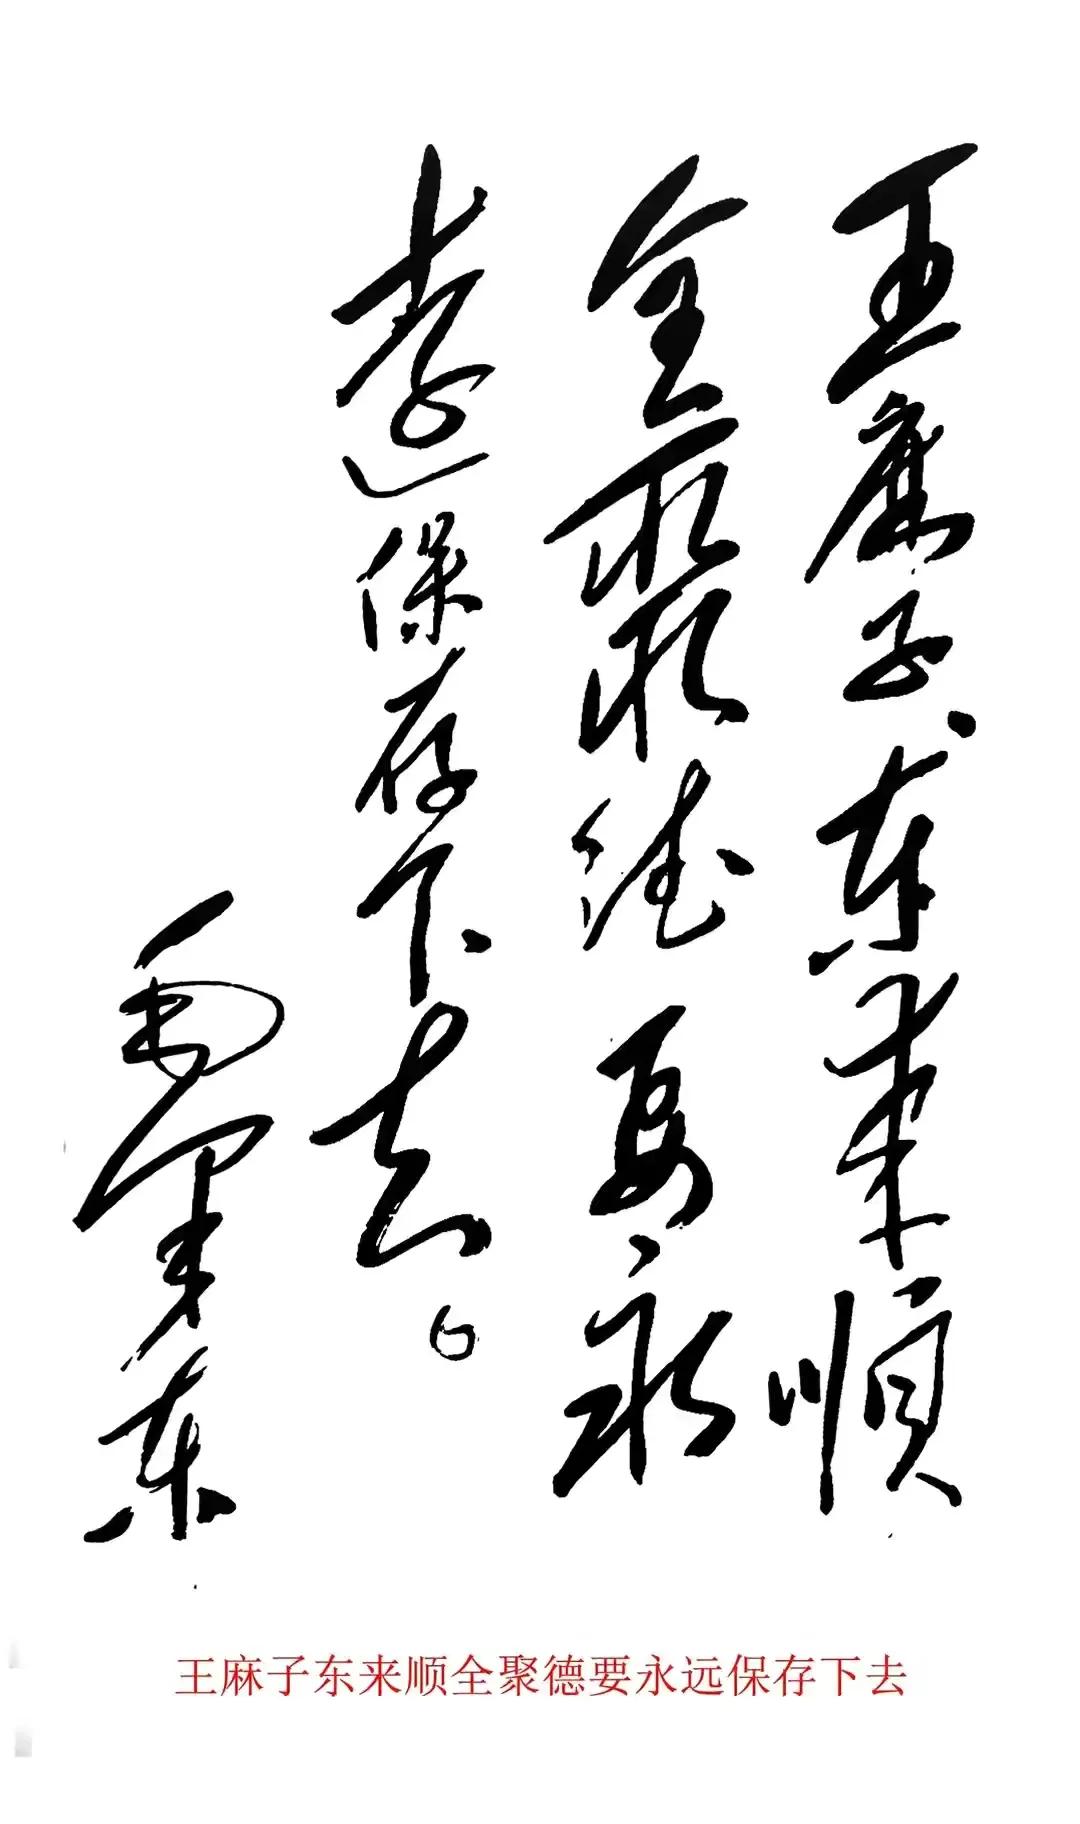 王麻子、东来顺
全聚德要永
远保存下去。
毛泽东
王麻子东来顺全聚德要永远保存下去